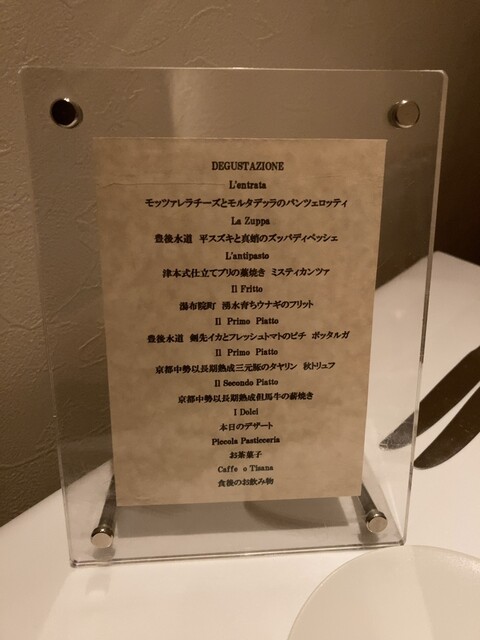 DEGUSTAZIONE
L'entrata
モッツァレラチーズとモルタデッラのパンツェロッティ
La Zuppa
豊後水道 平スズキと真蛸のズッパディペッシェ
L'antipasto
津本式仕立てブリの藁焼き ミスティカンツァ
Il Fritto
湯布院町 湧水育ちウナギのフリット
Il Primo Piatto
豊後水道 剣先イカとフレッシュトマトのピチ ボッタルガ
Il Primo Piatto
京都中勢以長期熟成三元豚のタヤリン 秋トリュフ
Il Secondo Piatto
京都中勢以長期熟成但馬牛の薪焼き
I Dolci
本日のデザート
Piccola Pasticceria
お茶菓子
Caffe o Tisana
食後のお飲み物